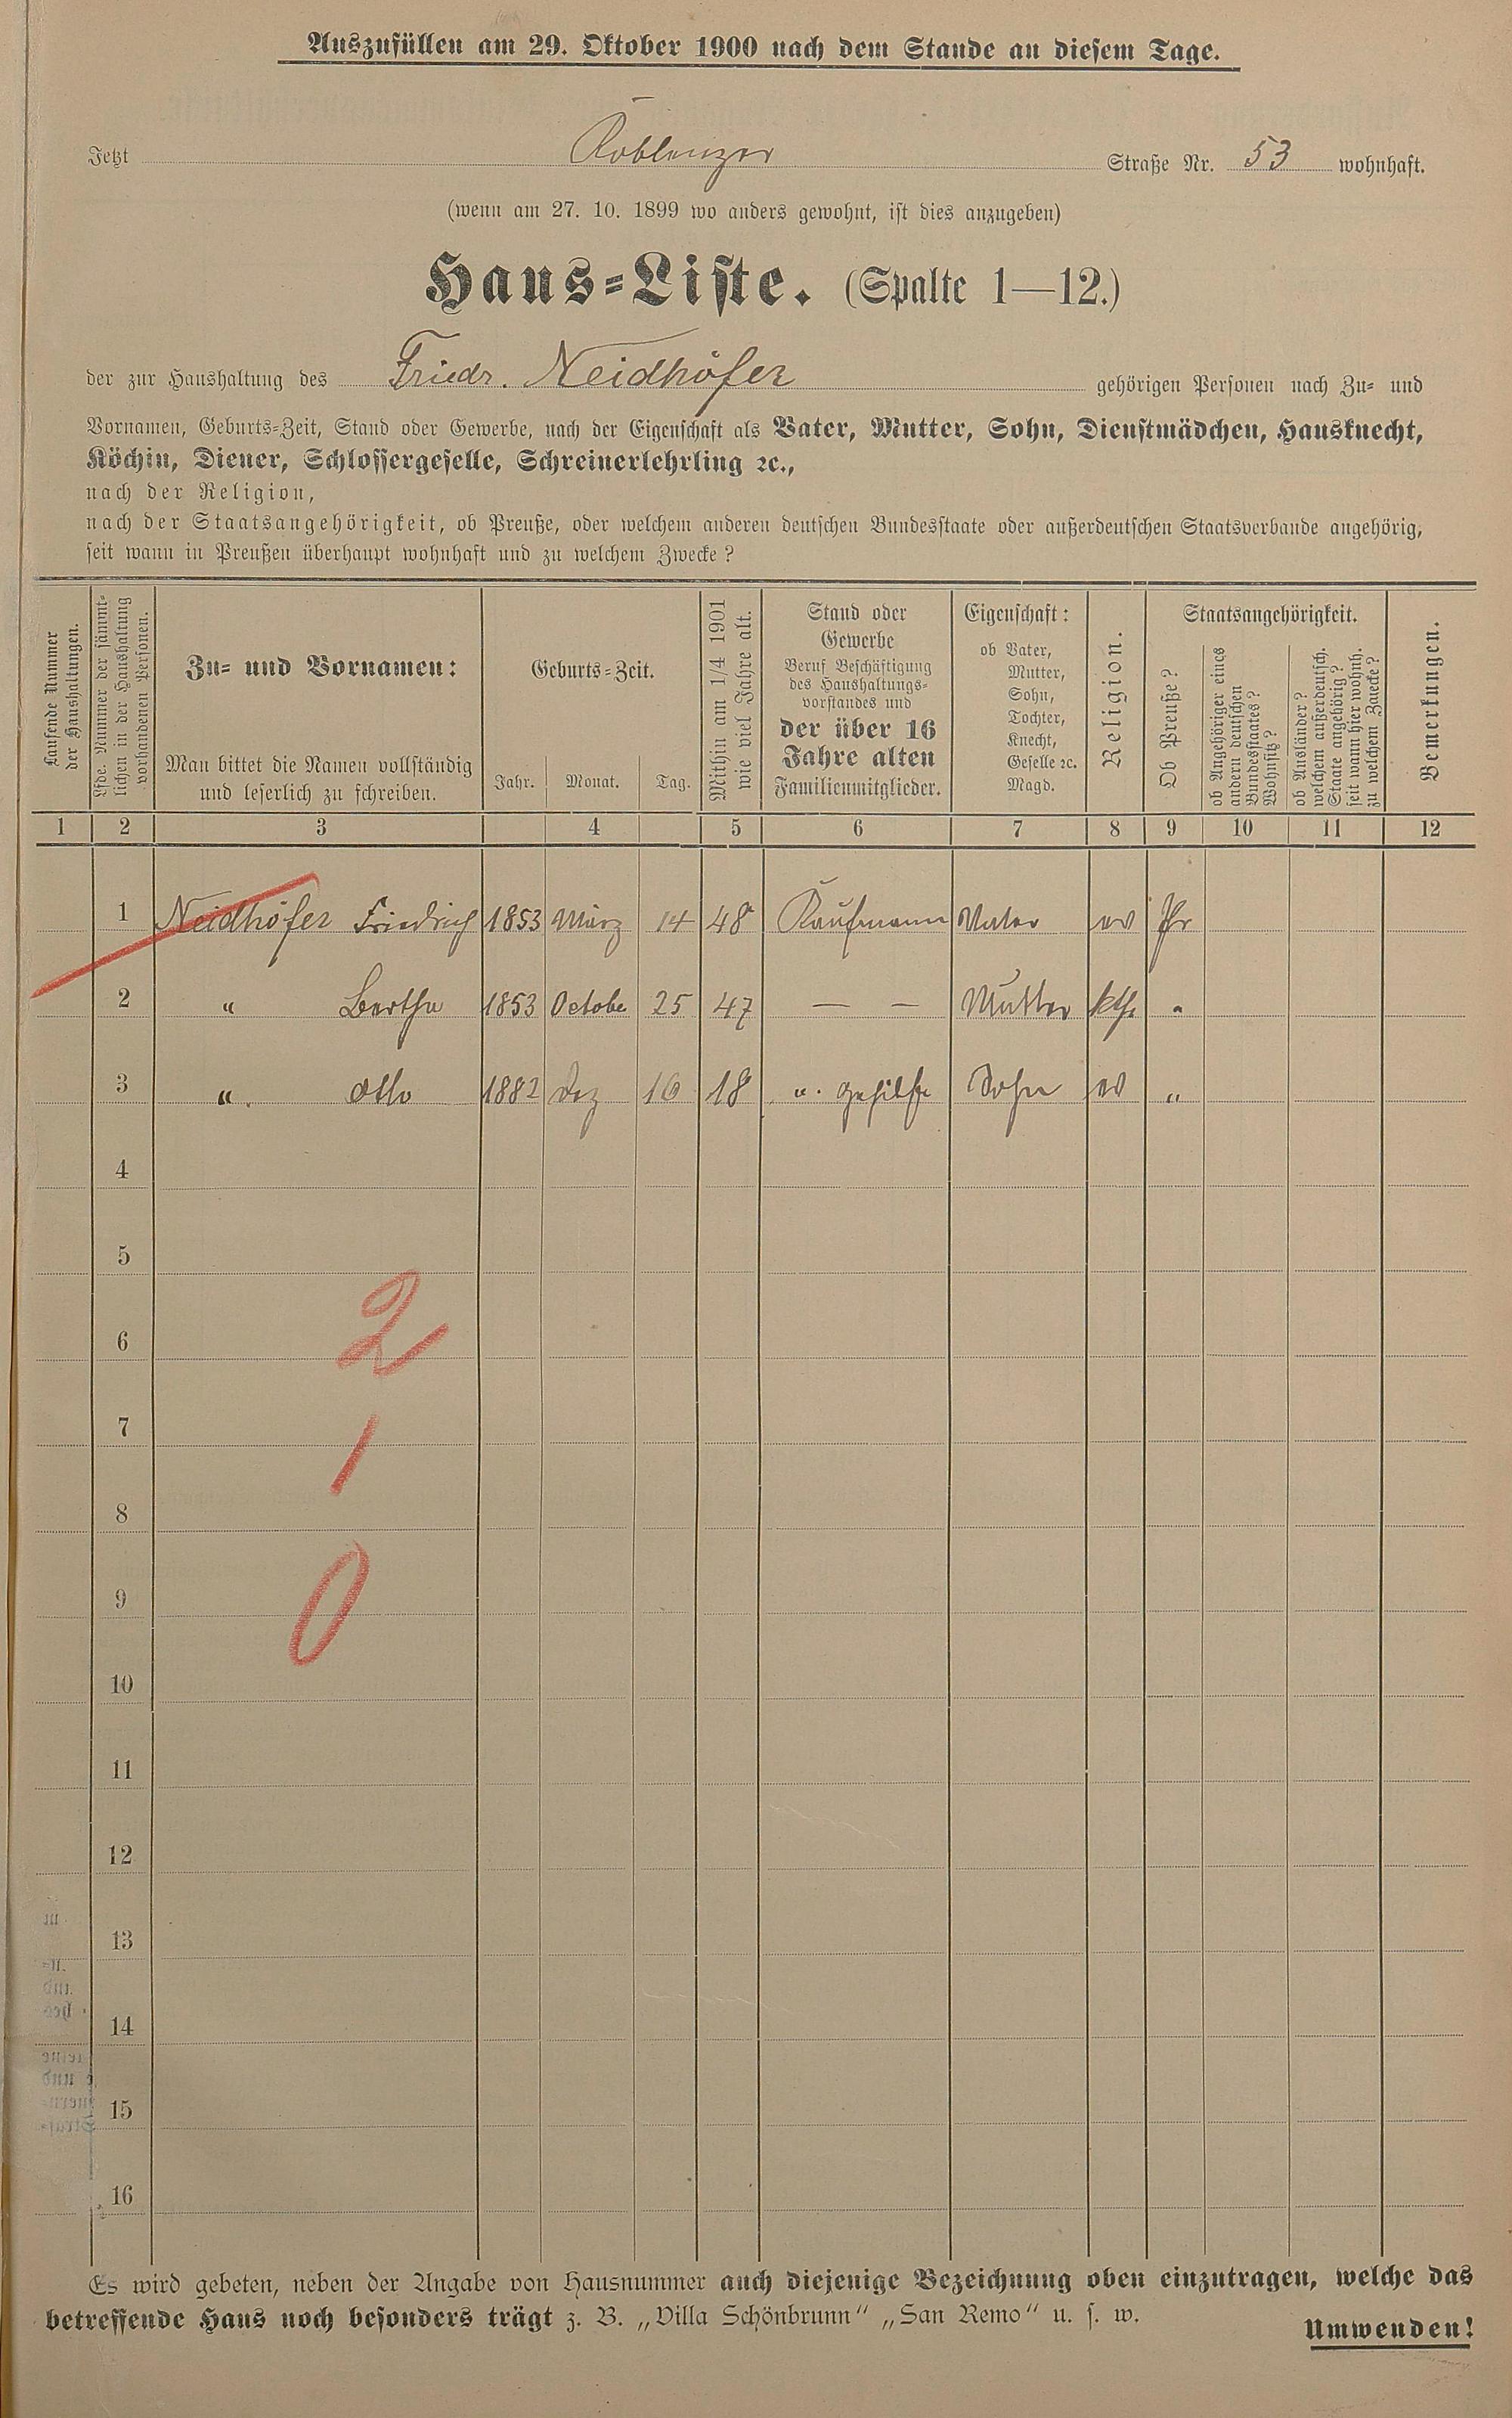 Auszufüllen am 29. Oktober 1900 nach dem Stande an diesem Tage.
Jetzt Koblenzer Straße Nr. 53 wohnhaft.
(wenn am 27. 10. 1899 wo anders gewohnt, ist dies anzugeben)
Haus-Liste. (Spalte 1—12.)
der zur Haushaltung des Friedr. Neidhöfer gehörigen Personen nach Zu- und
Vornamen, Geburts-Zeit, Stand oder Gewerbe, nach der Eigenschaft als Vater, Mutter, Sohn, Dienstmädchen, Hausknecht,
Köchin, Diener, Schlossergeselle, Schreinerlehrling ꝛc.,
nach der Religion,
nach der Staatsangehörigkeit, ob Preuße, oder welchem anderen deutschen Bundesstaate oder außerdeutschen Staatsverbande angehörig,
seit wann in Preußen überhaupt wohnhaft und zu welchem Zwecke?
Laufende Nummer
der Haushaltungen.
Lfde. Nummer der sämmt-
lichen in der Haushaltung
vorhandenen Personen.
Zu- und Vornamen:
Man bittet die Namen vollständig
und leserlich zu schreiben.
Geburts-Zeit.
Jahr. Monat. Tag.
Mithin am 1/4 1901
wie viel Jahre alt.
Stand oder
Gewerbe
Beruf Beschäftigung
des Haushaltungs-
vorstandes und
der über 16
Jahre alten
Familienmitglieder.
Eigenschaft:
ob Vater,
Mutter,
Sohn,
Tochter,
Knecht,
Geselle ꝛc.
Magd.
Religion.
Staatsangehörigkeit.
Ob Preuße?
ob Angehöriger eines
andern deutschen
Bundesstaates?
Wohnsitz?
ob Ausländer?
welchem außerdeutsch.
Staate angehörig?
seit wann hier wohnh.
zu welchem Zwecke?
Bemerkungen.
1 2 3 4 5 6 7 8 9 10 11 12
1 Neidhöfer Friedrich 1853 März 14 48 Kaufmann Vater ev Pr
2 " Bertha 1853 Octobe 25 47 — — Mutter kth. "
3 " Otto 1882 Dez 16 18 ". gehilfe Sohn ev "
4
5
6
2
7
1
8
9
0
10
11
12
13
14
15
16
Es wird gebeten, neben der Angabe von Hausnummer auch diejenige Bezeichnung oben einzutragen, welche das
betreffende Haus noch besonders trägt z. B. „Villa Schönbrunn“ „San Remo“ u. s. w.
Umwenden!